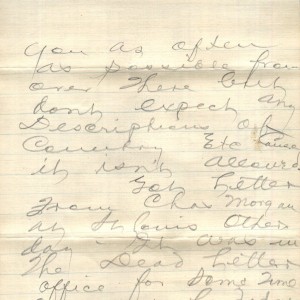 you as often
as possible from
over there but
dont expect any
Descriptions of
Country Etc cause
it isn't allowed
Got Letter
From Chas Morgan
at St Louis other
day - It was in
The Dead Letter
office for some time